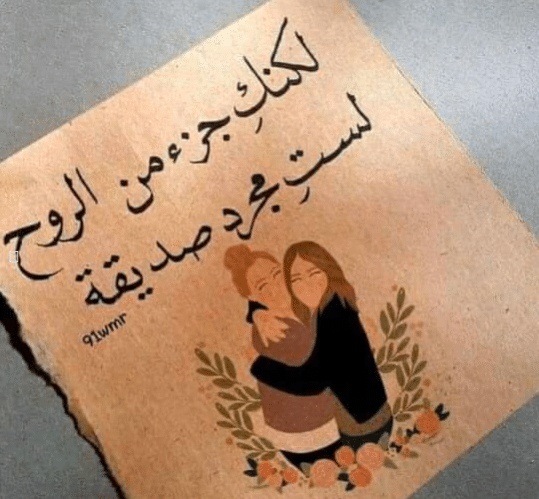 لكنكِ جزء من الروح
لستِ مجرد صديقة
91wmr